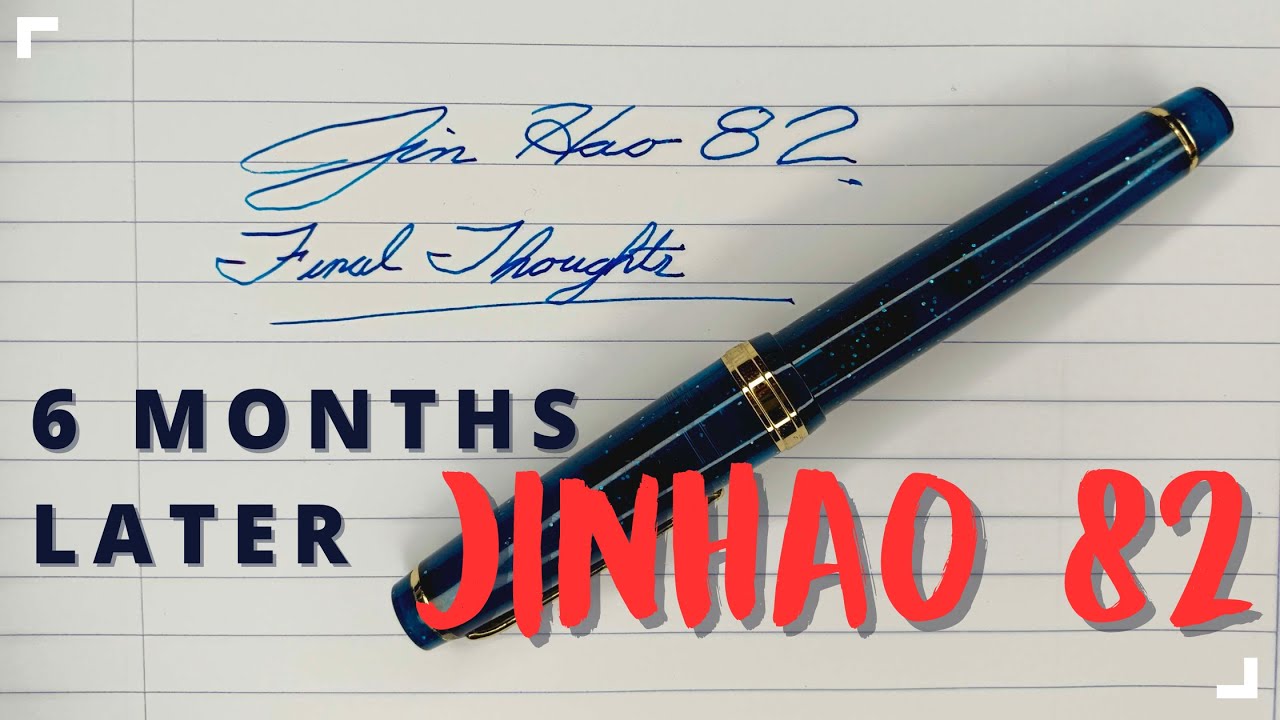 Jin Hao 82
Final Thoughts
6 MONTHS
LATER
JINHAO 82